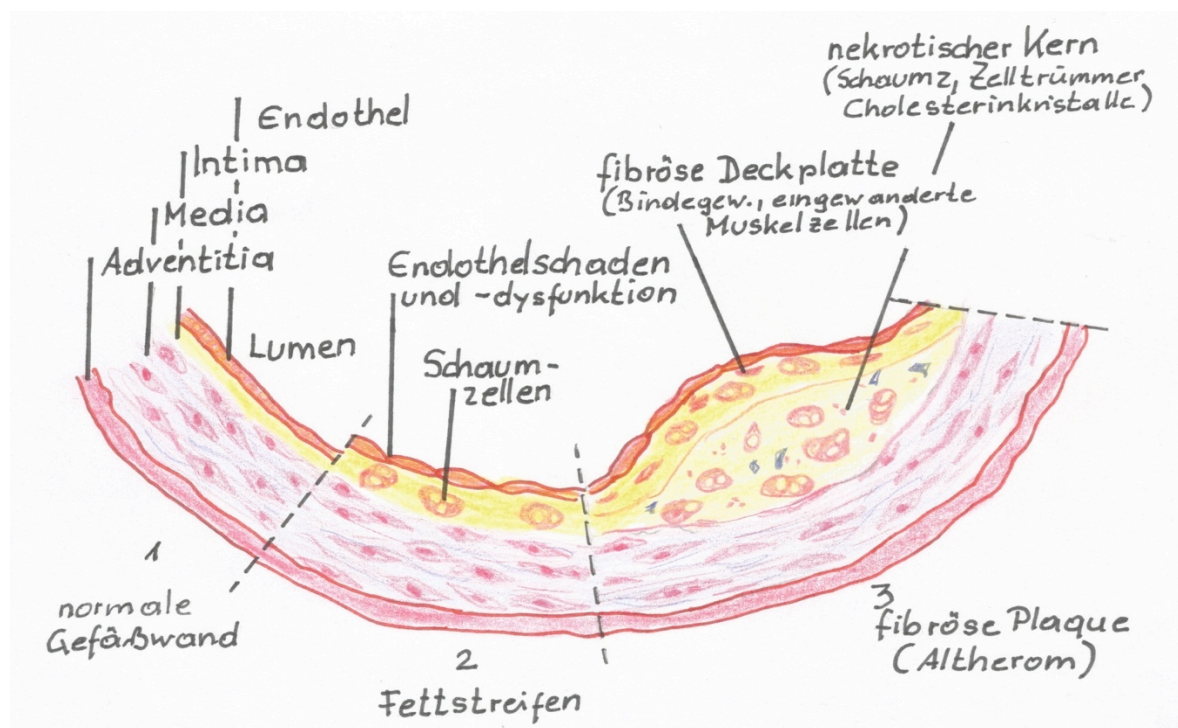 Endothel
Intima
Media
Adventitia
Lumen
Endothelschaden
und -dysfunktion
Schaum-
zellen
fibröse Deckplatte
(Bindegew., eingewanderte
Muskelzellen)
nekrotischer Kern
(Schaumz, Zelltrümmer,
Cholesterinkristalle)
1
normale
Gefäßwand
2
Fettstreifen
3
fibröse Plaque
(Altherom)